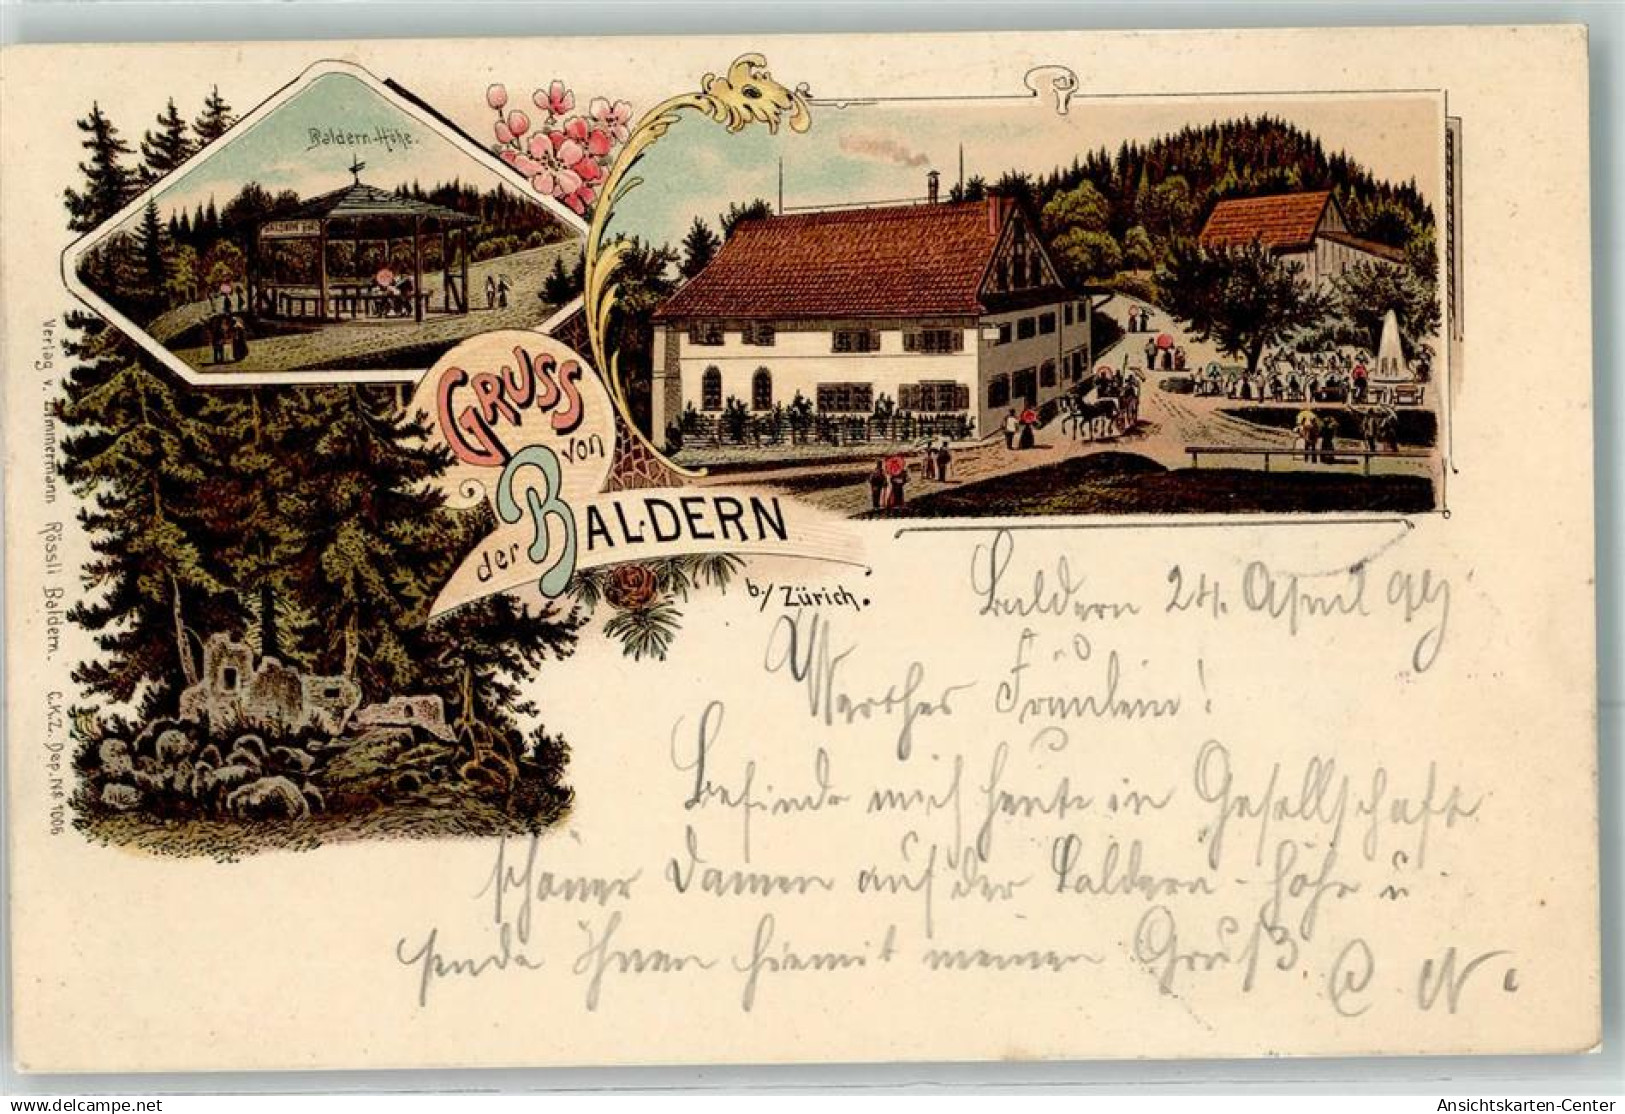 Baldern-Höhe.
BALDERN
GRUSS
von
der BALDERN
b./ Zürich.
Verlag v. Zimmermann Rössli Baldern. C.K.Z. Dep. No 1006
Baldern 24. April
Werthes Fräulein!
Befinde mich heute in Gesellschaft
schöner Damen auf der Baldern-Höhe u
sende Ihnen hiemit meinen Gruß C. N.
delcampe.net
Ansichtskarten-Center